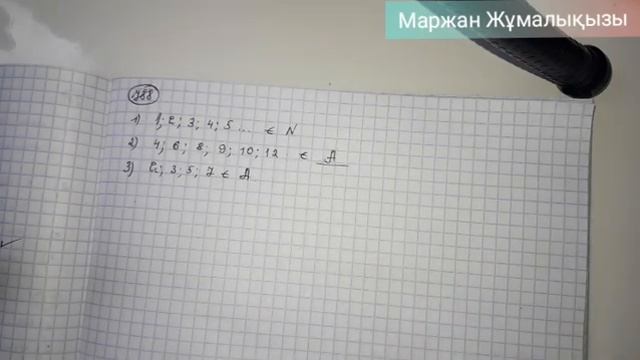 Маржан Жұмалықызы
788
1) 1; 2; 3; 4; 5 ... ∈ N
2) 4; 6; 8; 9; 10; 12 ∈ A
3) 2; 3; 5; 7 ∈ A